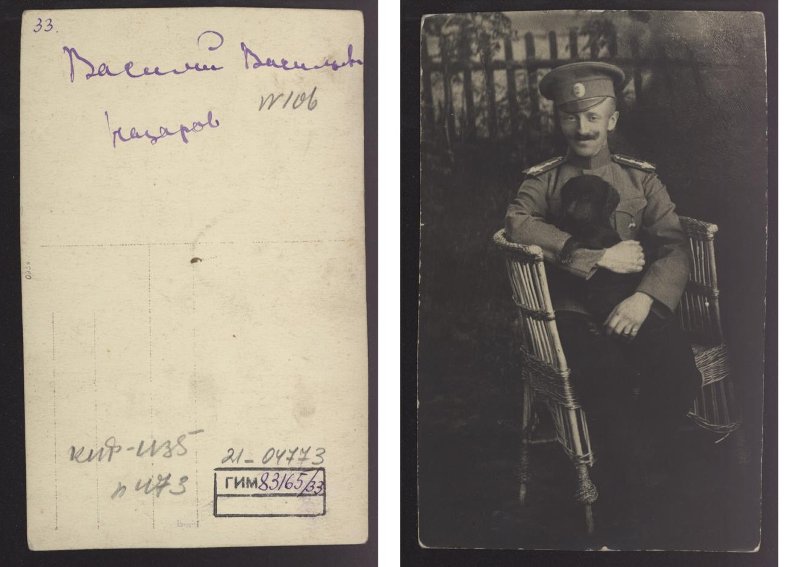 33.
Василий Васильев
№106
Назаров
КИФ-1135
п 1173
21-04773
ГИМ 83165/33